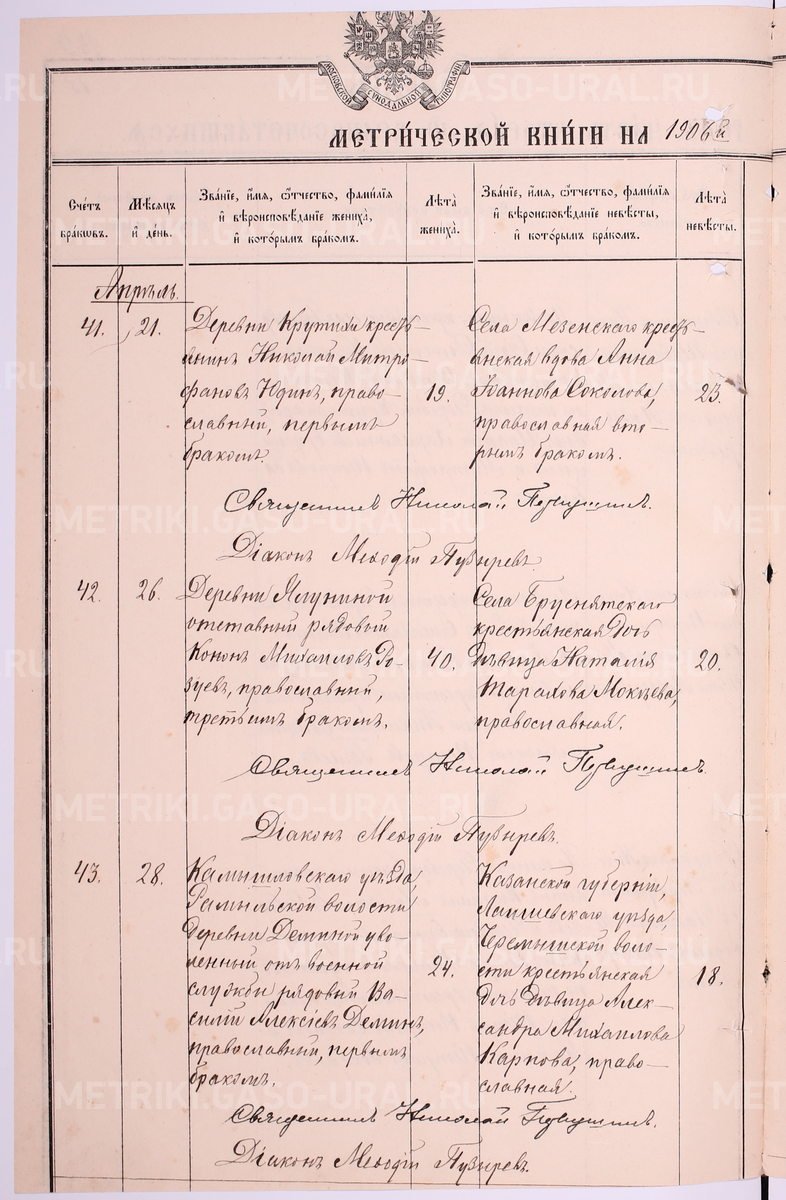 МОСКОВСКОЙ СѴНОДАЛЬНОЙ ТИПОГРАФІИ
МЕТРИ́ЧЕСКОЙ КНИ́ГИ НА 1906й
Сче́тъ бра́кѡвъ.
Мѣ́сяцъ и҆ де́нь.
Зва́нїе, и҆́мѧ, ѻ҆́тчество, фами́лїѧ
и҆ вѣроисповѣ́данїе жениха̀,
и҆ кото́рымъ бра́комъ.
Лѣ́та жениха̀.
Зва́нїе, и҆́мѧ, ѻ҆́тчество, фами́лїѧ
и҆ вѣроисповѣ́данїе невѣ́сты,
и҆ кото́рымъ бра́комъ.
Лѣ́та невѣ́сты.
Апрѣль.
41.
21.
Деревни Крутихи кресть-
янинъ Николай Митро-
фановъ Юдинъ, право-
славный, первымъ
бракомъ.
19.
Села Мезенскаго кресть-
янская вдова Анна
Іоаннова Соколова,
православная вто-
рымъ бракомъ.
23.
Священникъ Николай
Діаконъ Меѳодій Пузыревъ
42.
26.
Деревни Ялуниной
отставный рядовой
Кононъ Михаиловъ Ро-
зуевъ, православный,
третьимъ бракомъ.
40.
Села Бруснятскаго
крестьянская дочь
дѣвица Наталія
Тарахова Мокѣева,
православная.
20.
Священникъ Николай
Діаконъ Меѳодій Пузыревъ.
43.
28.
Камышловскаго уѣзда,
волости
деревни Деминой уво-
ленный отъ военной
службы рядовый Ва-
силій Алексіевъ Деминъ,
православный, первымъ
бракомъ.
24.
Казанской губерніи,
Лаишевскаго уѣзда,
Черемышской воло-
сти крестьянская
дочь дѣвица Алек-
сандра Михаилова
Карпова, право-
славная.
18.
Священникъ Николай
Діаконъ Меѳодій Пузыревъ.
METRIKI.GASO-URAL.RU